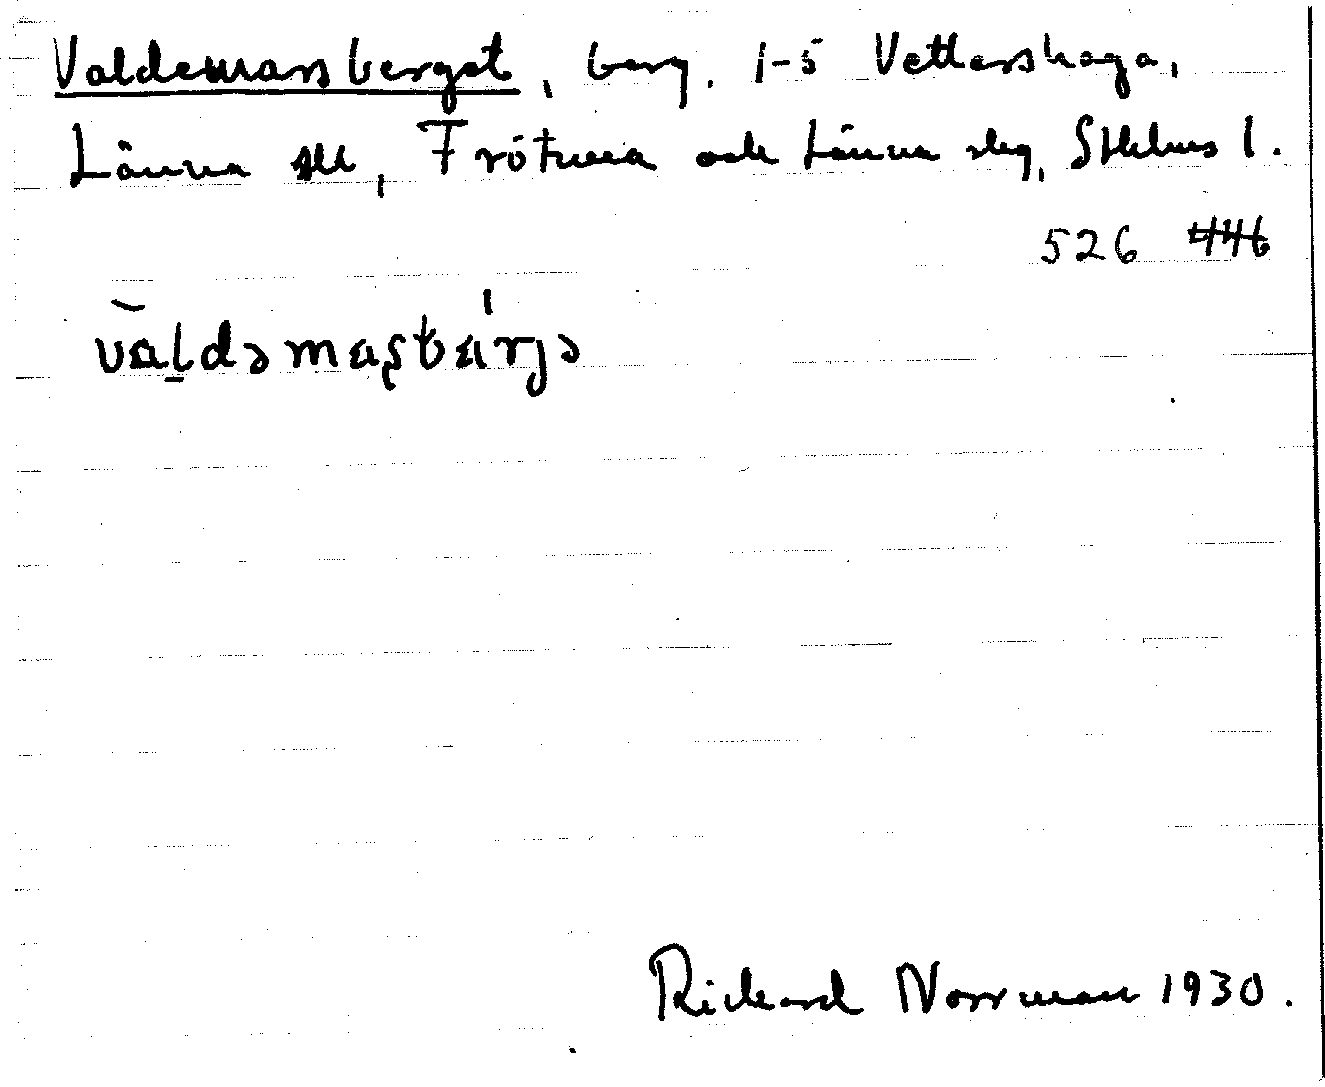 Valdemarsberget, berg, 1-5 Vettershaga,
Länna sn, Frötuna och Länna slg, Sthlms l.
526 446
valdəmaʂbærjə
Rickard Norrman 1930.